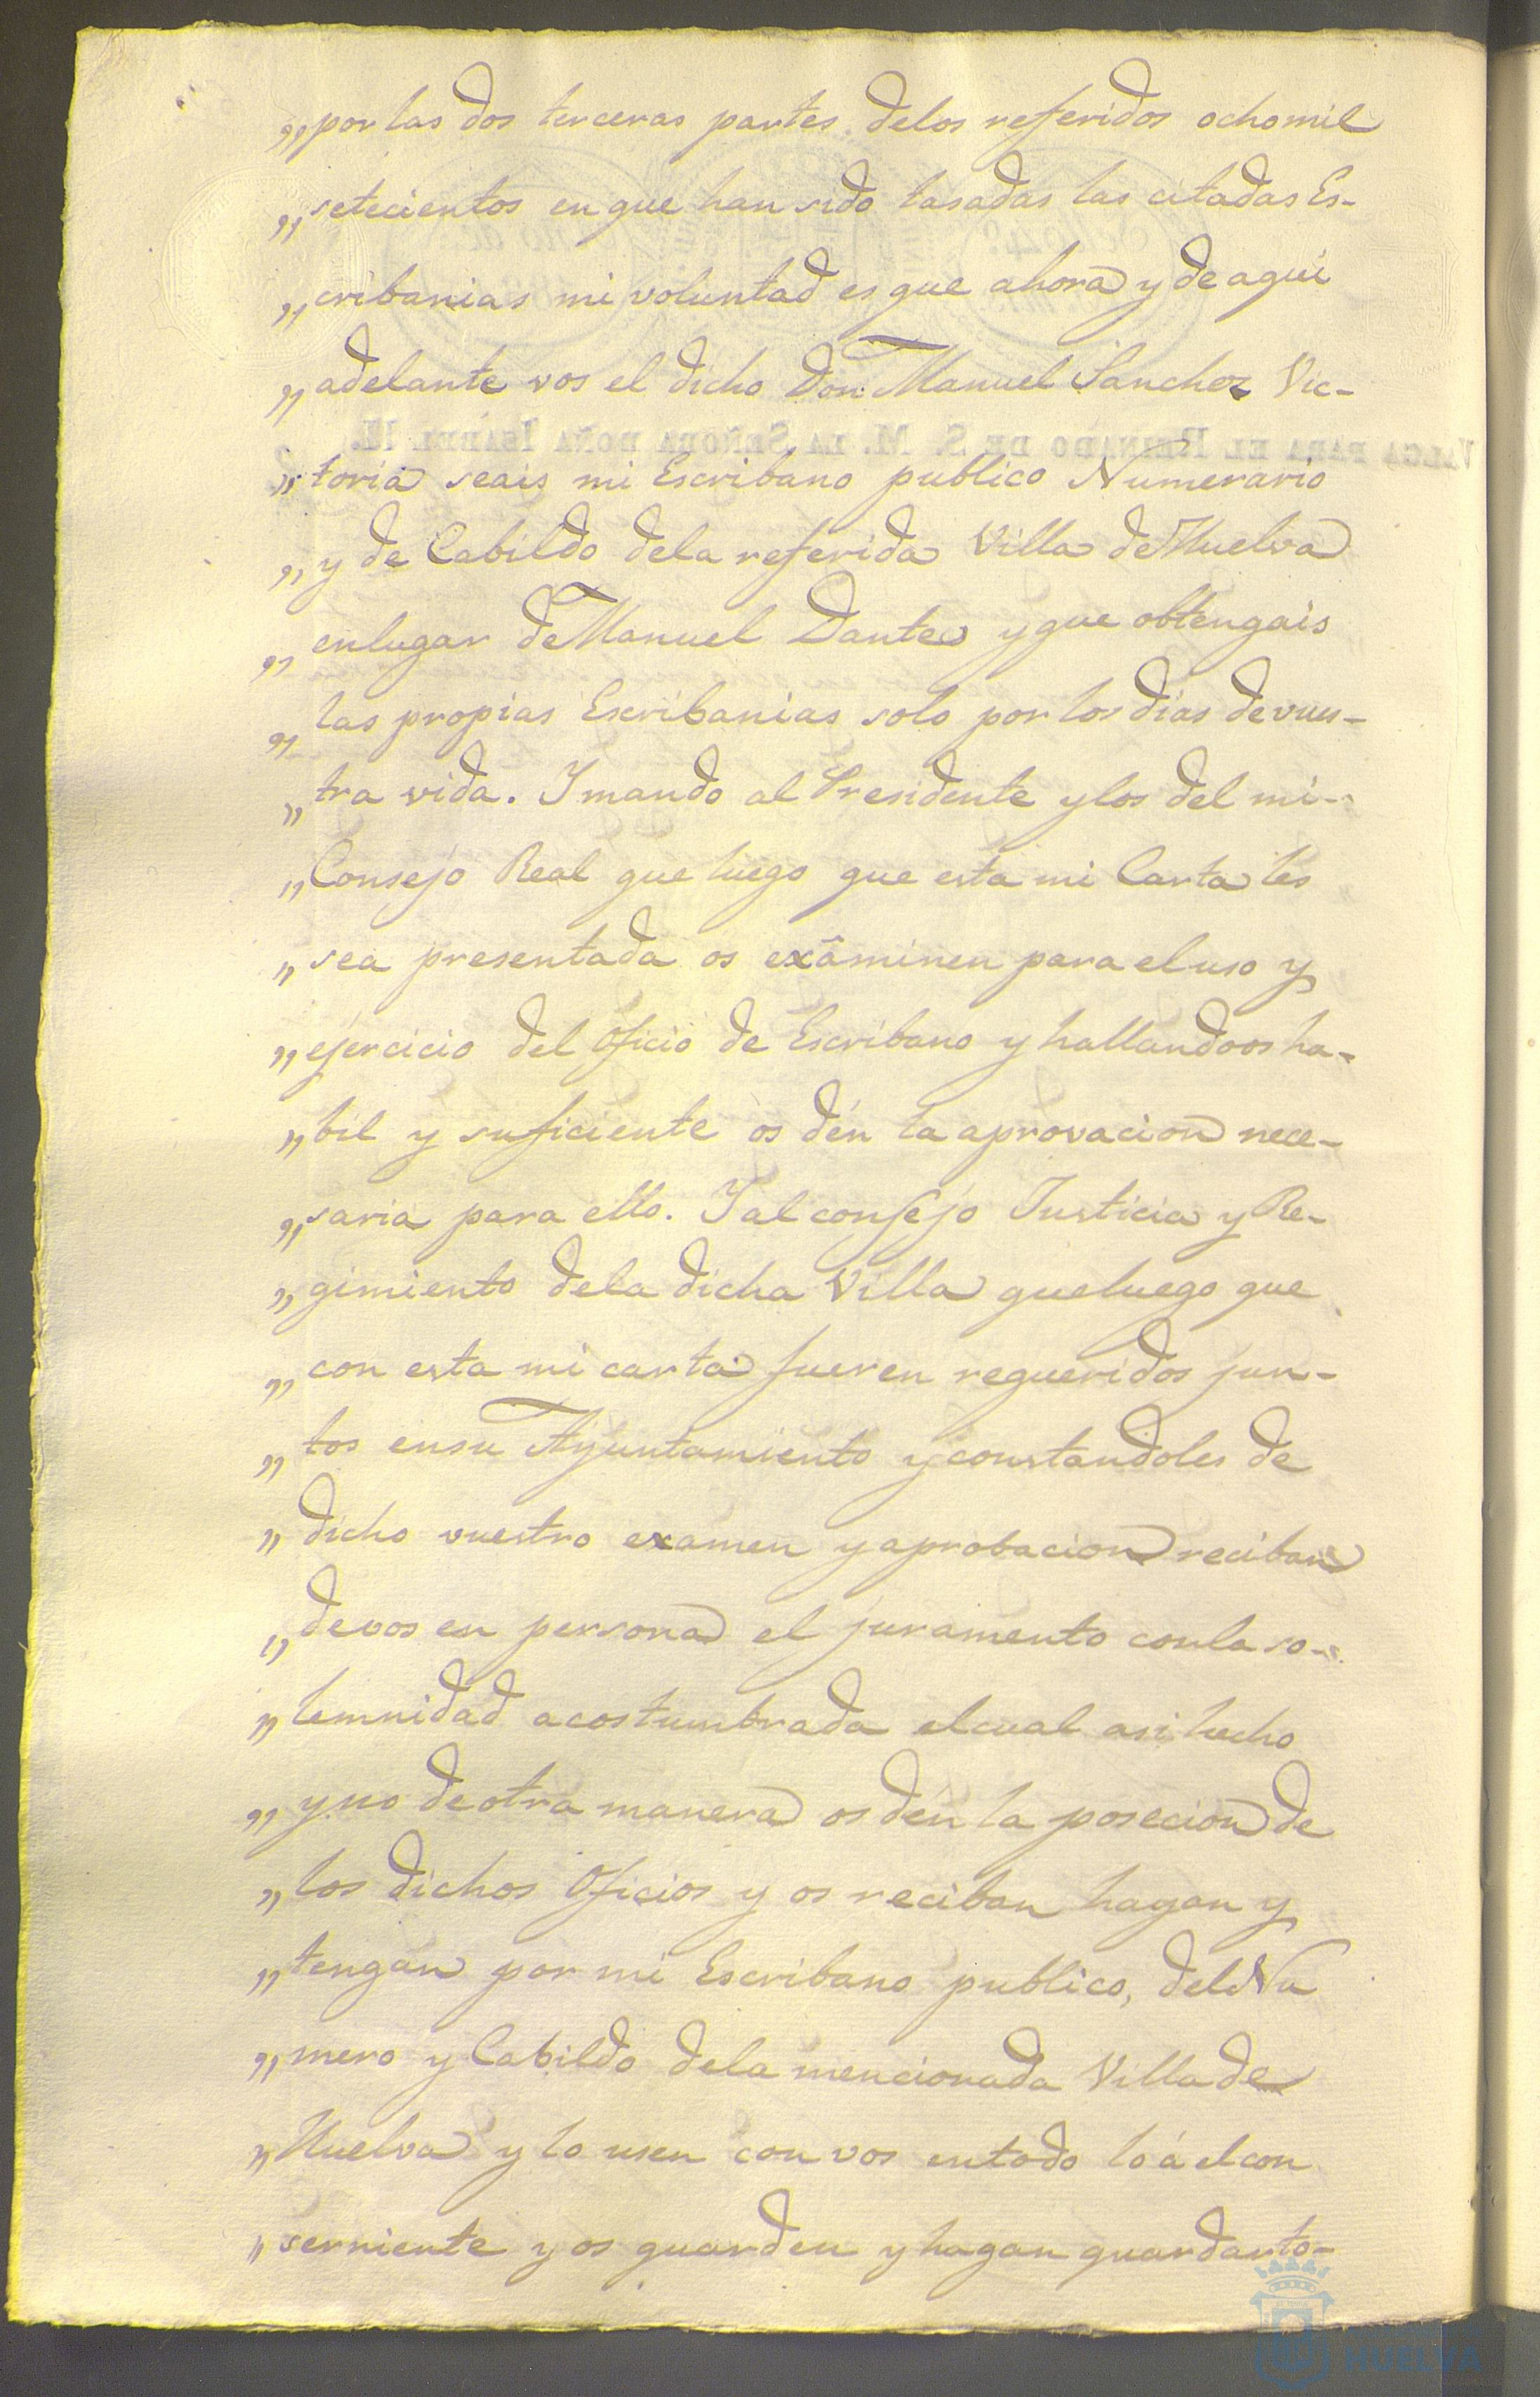 „por las dos terceras partes delos referidos ochomil
„setecientos en que han sido tasadas las citadas Es-
„cribanias mi voluntad es que ahora y de aqui
„adelante vos el dicho Don Manuel Sanchez Vic-
VALGA PARA EL REINADO DE S. M. LA SEÑORA DOÑA ISABEL II.
„toria seais mi Escribano publico Numerario
„y de Cabildo dela referida Villa de Huelva
„enlugar de Manuel Dantes y que obtengais
„las propias Escribanias solo por los dias de vues-
„tra vida. Y mando al Presidente y los del mi-
„Consejo Real que luego que esta mi Carta les
„sea presentada os exâminen para el uso y
„ejercicio del Oficio de Escribano y hallandoos ha-
„bil y suficiente ôs dén la aprovacion nece-
„saria para ello. Y al consejo Justicia y Re-
„gimiento dela dicha Villa que luego que
„con esta mi carta fueren requeridos jun-
„tos ensu Ayuntamiento y constandoles de
„dicho vuestro examen y aprobacion reciban
„de vos en persona el juramento con la so-
„lemnidad acostumbrada el cual asi hecho
„y no de otra manera os dén la posecion de
„los dichos Oficios y os reciban hayan y
„tengan por mi Escribano publico, del Nu
„mero y Cabildo dela mencionada Villa de
„Huelva y lo usen con vos entodo lo á el con
„serniente y os guarden y hagan guardar to-
HUELVA